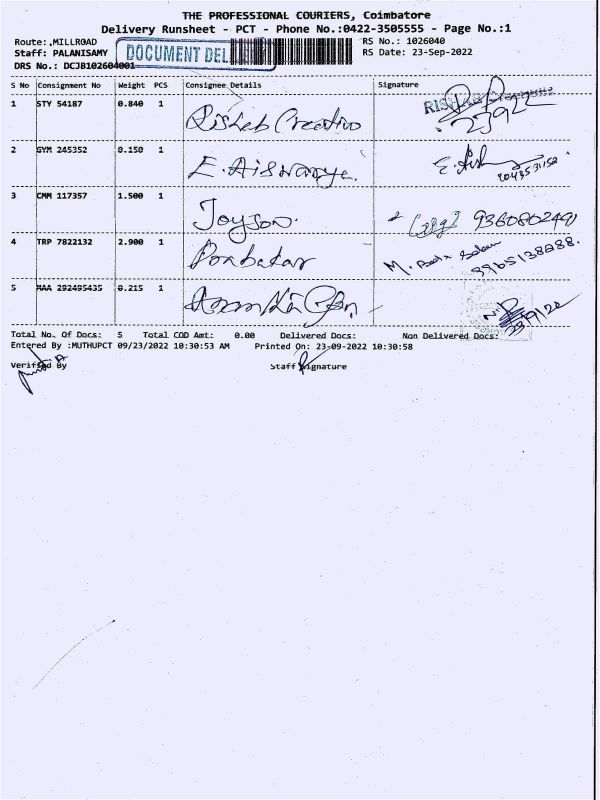 THE PROFESSIONAL COURIERS, Coimbatore
Delivery Runsheet - PCT - Phone No.:0422-3505555 - Page No.:1
Route: ,MILLROAD
Staff: PALANISAMY
DRS No.: DCJB102604001
DOCUMENT DEL
RS No.: 1026040
RS Date: 23-Sep-2022
S No Consignment No Weight PCS Consignee Details Signature
1 STY 54187 0.840 1 Rishab Creation
2 GYM 245352 0.150 1 E. Aiswarya.
3 CMM 117357 1.500 1 Joyson. 9360802490
4 TRP 7822132 2.900 1 M.
5 MAA 292495435 0.215 1 23/9/22
Total No. Of Docs: 5 Total COD Amt: 0.00 Delivered Docs: Non Delivered Docs:
Entered By :MUTHUPCT 09/23/2022 10:30:53 AM Printed On: 23-09-2022 10:30:58
Verified By Staff Signature